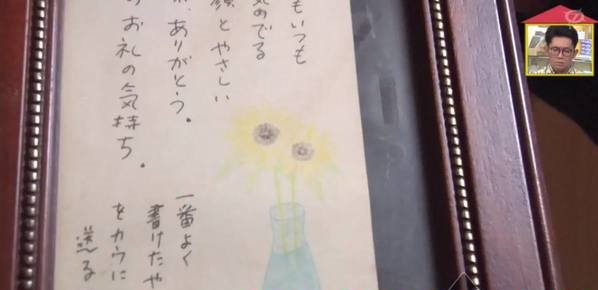 もいつも
気めでる
顔とやさしい
ホ、ありがとう。
のお礼の気持ち。
一番よく
書けたや
をカウに
送る